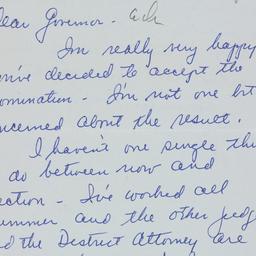 Dear Governor -
I'm really very happy
you've decided to accept the
nomination - I'm not one bit
concerned about the result.
I haven't one single thing
to do between now and
election - I've worked all
summer and the other judge
and the District Attorney are